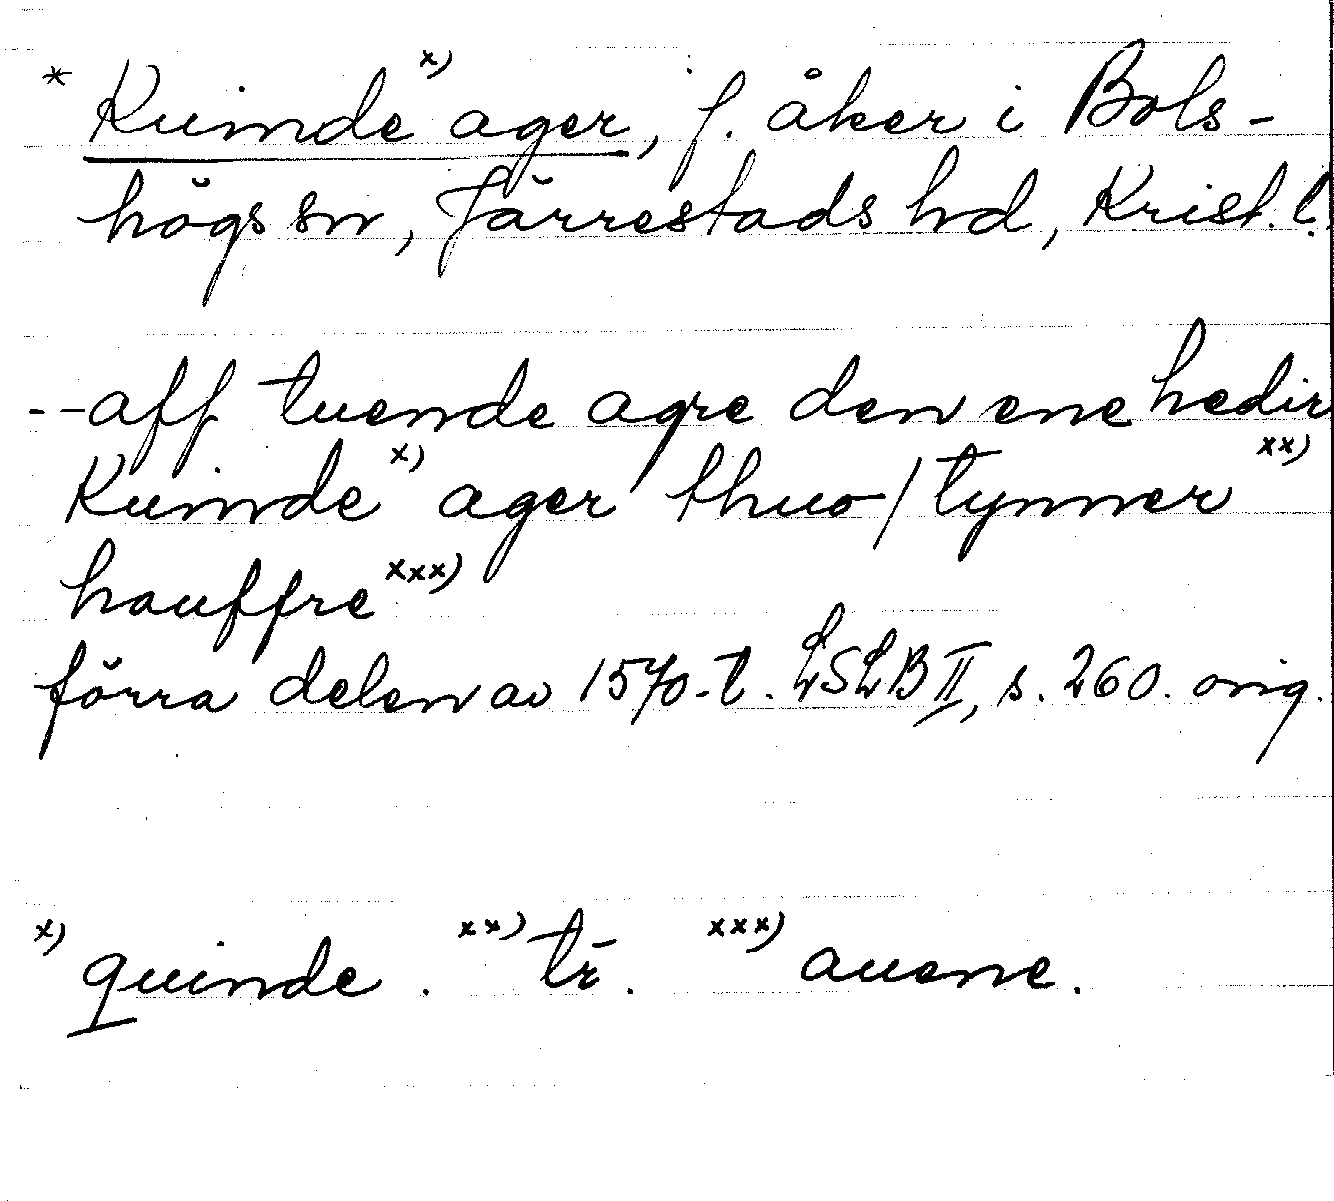 * Kuinde x) ager, f. åker i Bols-
högs sn, Järrestads hd, Krist. l.
--aff tuende agre den ene hedir
Kuinde x) ager thuo/tynner xx)
hauffre xxx)
förra delen av 1570-t. LSLB II, s. 260. orig.
x) quinde. xx) tr̄. xxx) auene.